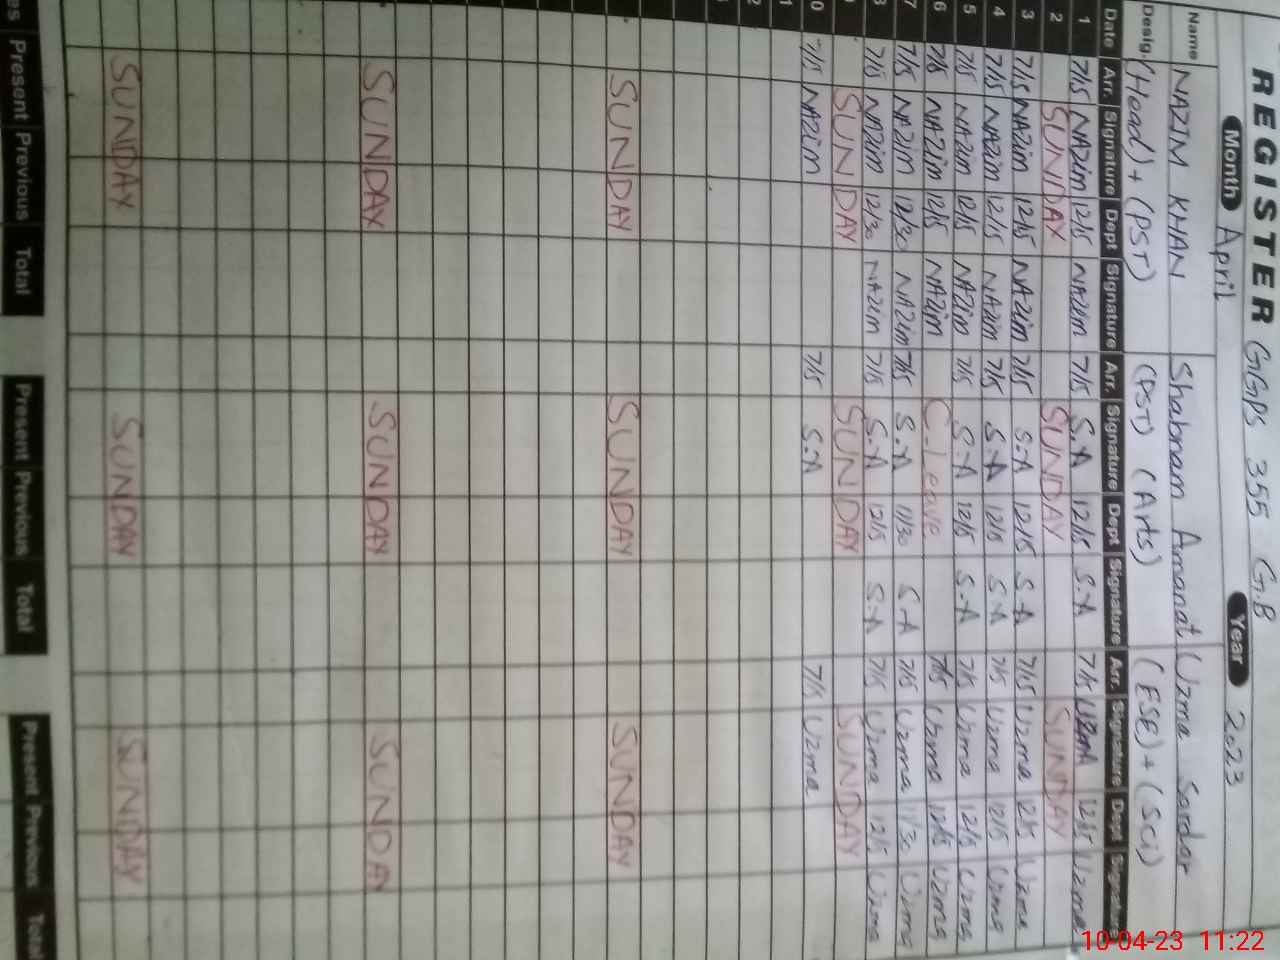 REGISTER GGPS 355 G.B
Month April Year 2023
Name NAZIM KHAN Shabnam Amanat Uzma Sardar
Desig. (Head) + (PST) (PST) (Arts) (ESE) + (Sci)
Date Arr. Signature Dept Signature Arr. Signature Dept Signature Arr. Signature Dept Signature
1 7/15 NAZim 12/15 NAZim 7/15 S.A 12/15 S.A 7/15 UzmA 12/15 Uzma
2 SUNDAY SUNDAY SUNDAY
3 7/15 NAZim 12/15 NAZim 7/15 S.A 12/15 S.A 7/15 Uzma 12/15 Uzma
4 7/15 NAZim 12/15 NAZim 7/15 S.A 12/15 S.A 7/15 Uzma 12/15 Uzma
5 7/15 NAZim 12/15 NAZim 7/15 S.A 12/15 S.A 7/15 Uzma 12/15 Uzma
6 7/15 NAZim 12/15 NAZim C-Leave 7/15 Uzma 12/15 Uzma
7 7/15 NAZim 12/30 NAZim 7/15 S.A 11/30 S.A 7/15 Uzma 11/30 Uzma
8 7/15 NAZim 12/30 NAZim 7/15 S.A 12/15 S.A 7/15 Uzma 12/15 Uzma
SUNDAY SUNDAY SUNDAY
0 7/15 NAZim 7/15 S.A 7/15 Uzma
1
2
SUNDAY SUNDAY SUNDAY
SUNDAY SUNDAY SUNDAY
SUNDAY SUNDAY SUNDAY
es Present Previous Total Present Previous Total Present Previous Total
10-04-23 11:22